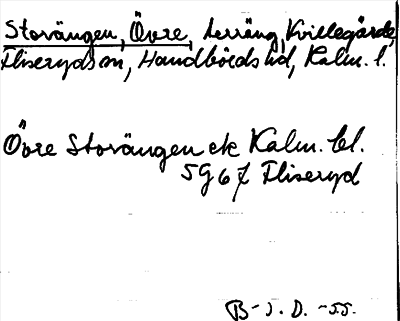 Storängen, Övre, terräng, Kvillegärde,
Fliseryds sn, Handbörds hd, Kalm. l.
Övre Storängen ek Kalm. bl.
5 G 6 f Fliseryd
B-J. D. -55.